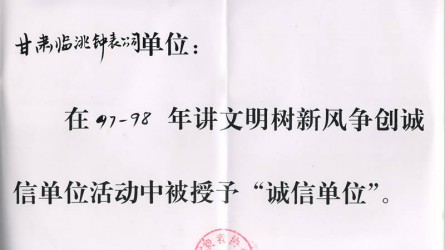 甘肃临洮钟表公司单位：
在97-98年讲文明树新风争创诚
信单位活动中被授予“诚信单位”。